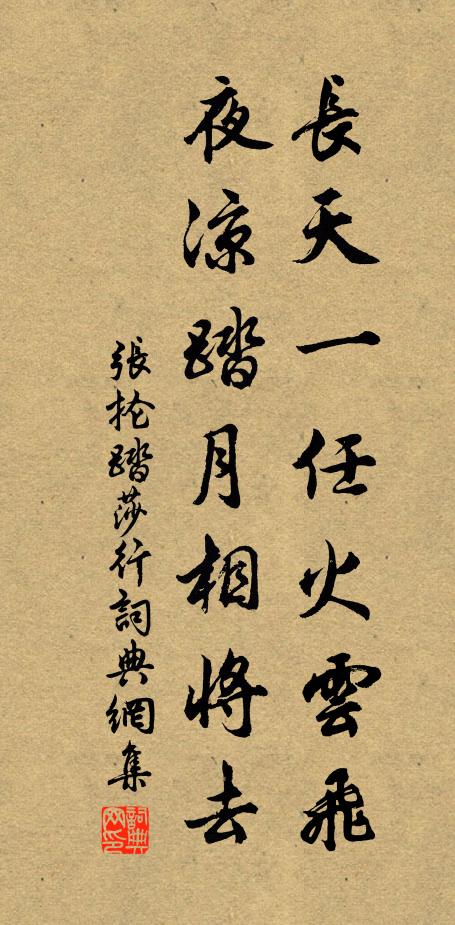 長天一任火雲飛
夜涼踏月相將去
張抡踏莎行詞典網集
詞典网印